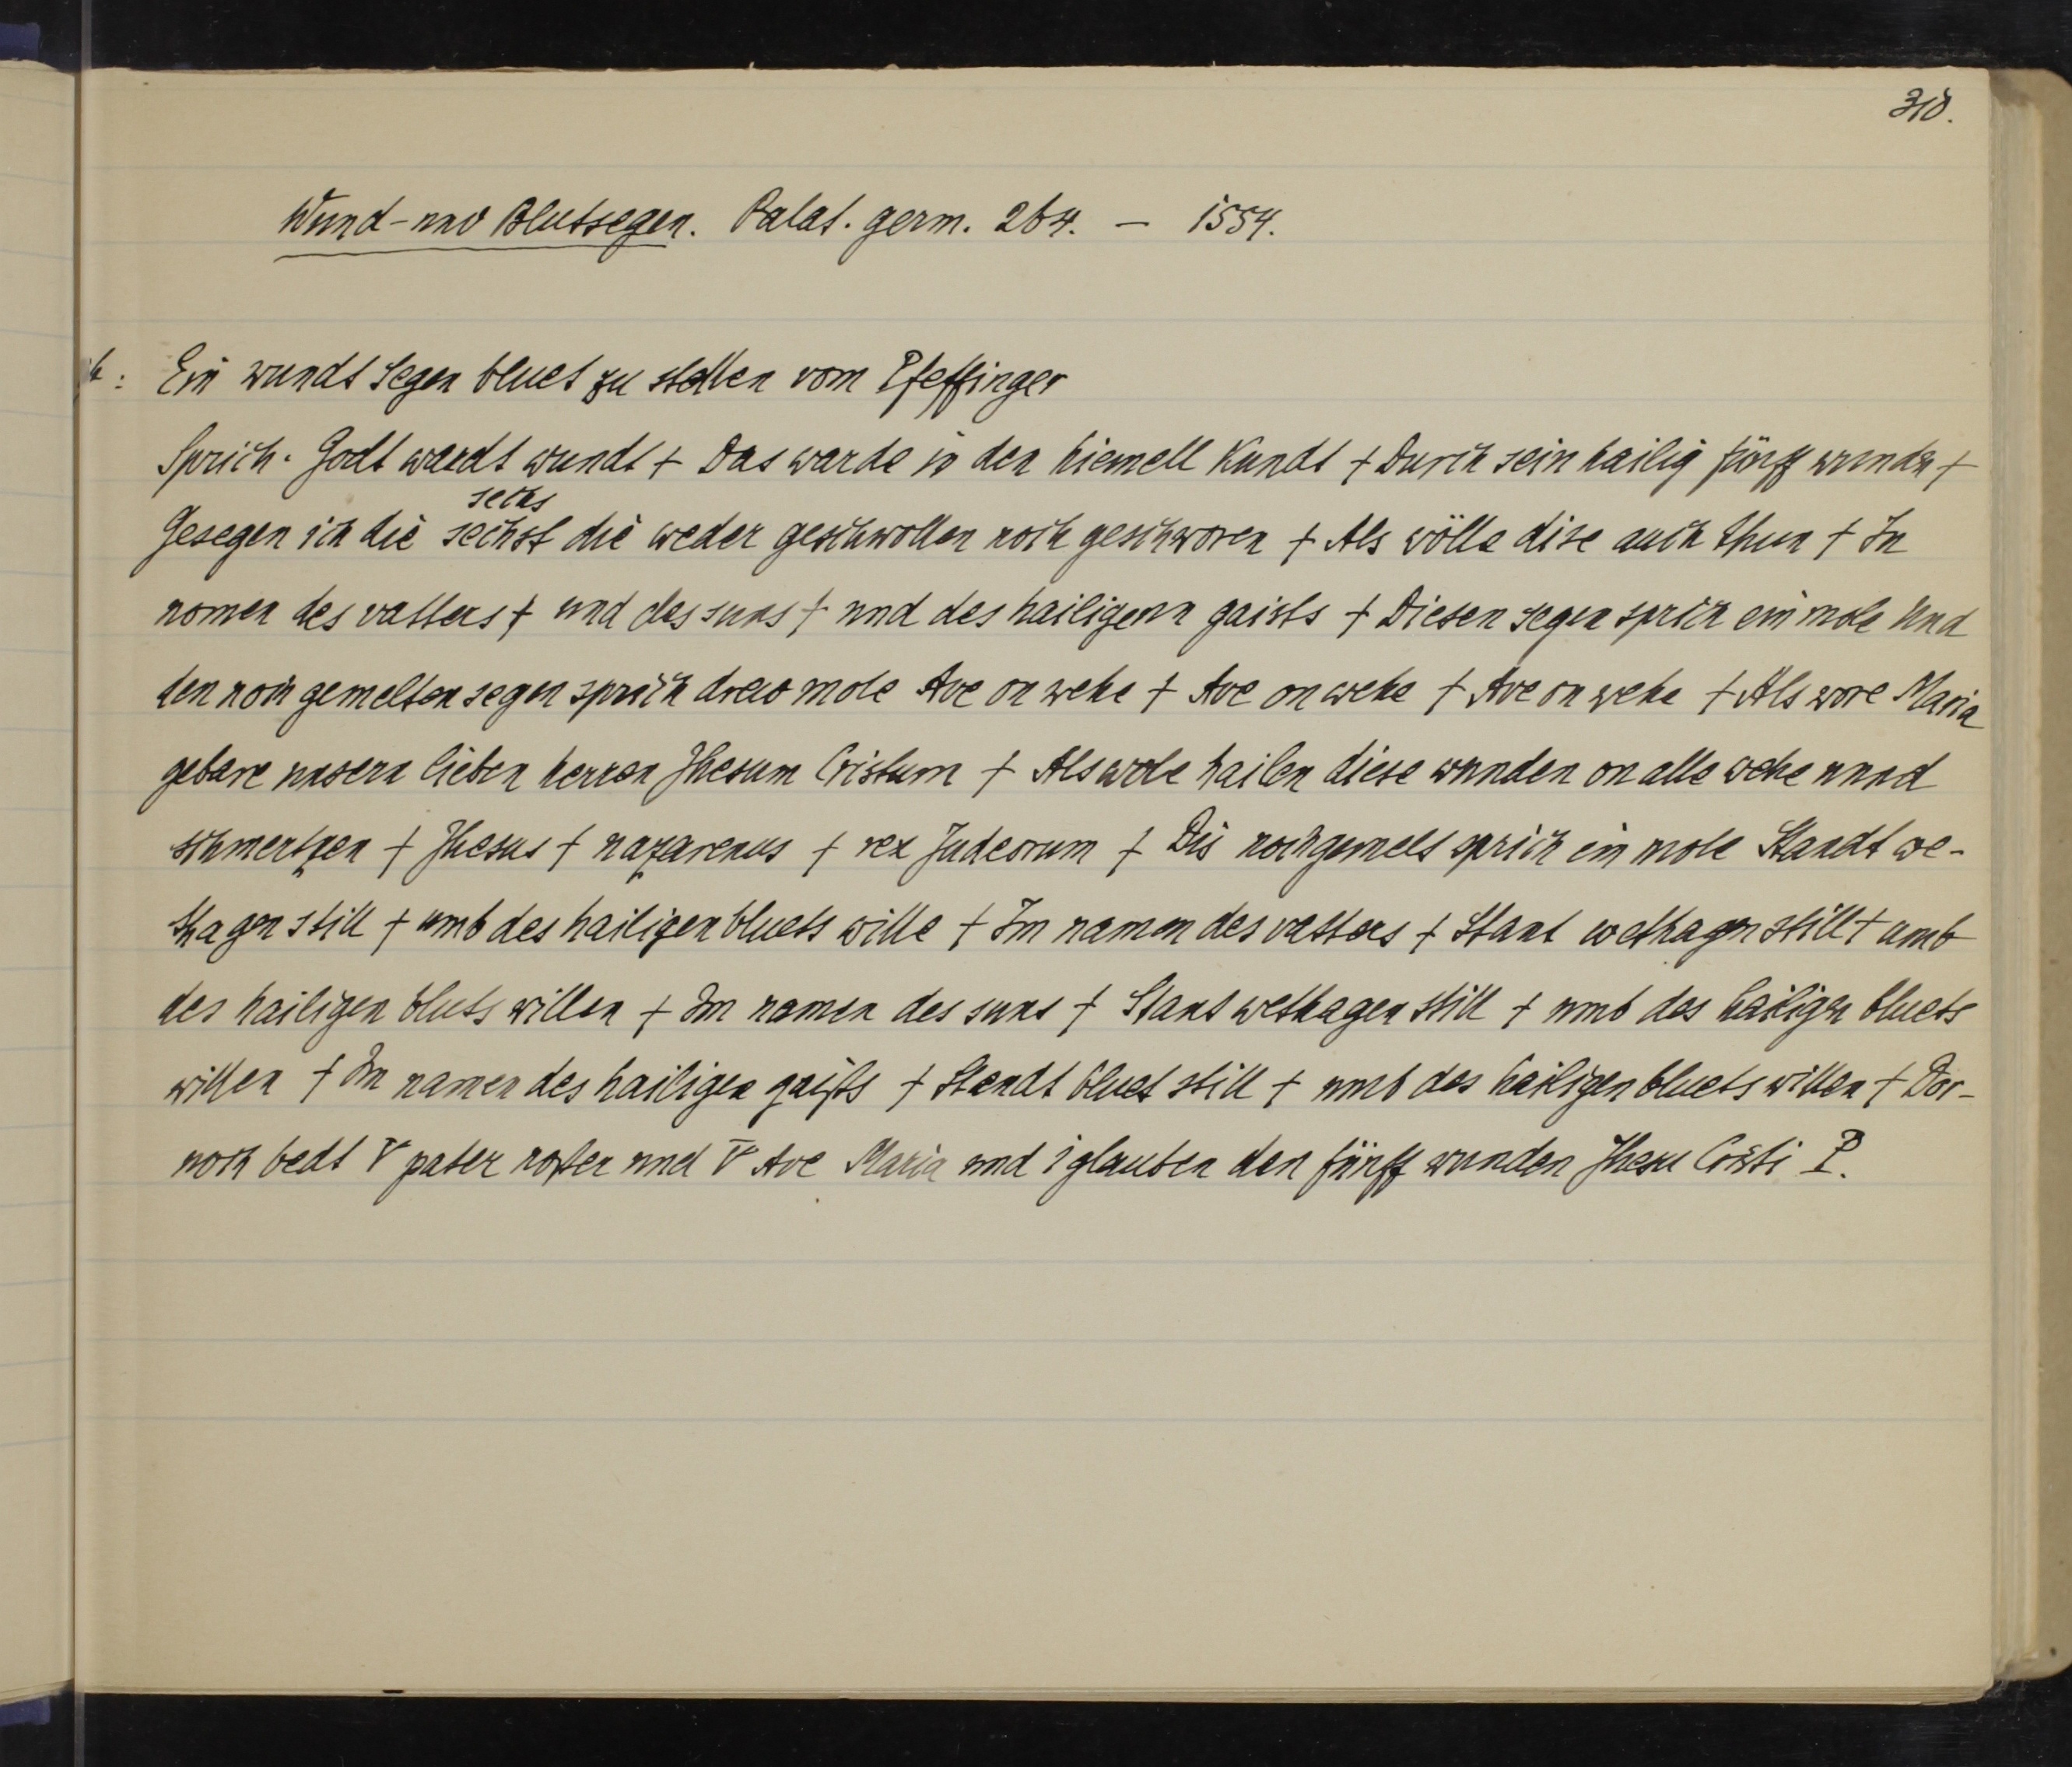 310.
Wund- und Blutsegen. Palat. germ. 264. — 1554.
Ein wundt segen bluet zu stellen vom Pfeffinger
Sprich. Godt wardt wundt + Das warde in den hiemell Kundt + Durch sein hailig fünff wunden +
sechs
Gesegen ich die sechst die weder geschwollen noch geschworen + Als wölle dise auch thun + In
nomen des vatters + und des suns + und des hailigenn gaists + Diesen segen sprich ein mole Und
den noch gemelten segen sprich drew mole Ave on wehe + Ave on wehe + Ave on wehe + Als wore Maria
gebare unsern lieben herren Jhesum Cristum + Als wole hailen diese wunden on alle wehe unnd
schmertzen + Jhesus + nazarenus + rex Judeorum + Dis nochgemelt sprich ein mole Standt we-
thagen still + umb des hailigen bluets wille + Im namen des vatters + Stant wethagen still + umb
des hailigen bluts willen + Im namen des suns + Stant wethagen still + umb des hailigen bluets
willen + Im namen des hailigen gaists + Standt bluet still + umb des hailigen bluets willen + Dor-
noch bedt V pater noster und V Ave Maria und 1 glauben den fünff wunden Jhesu Cristi P.